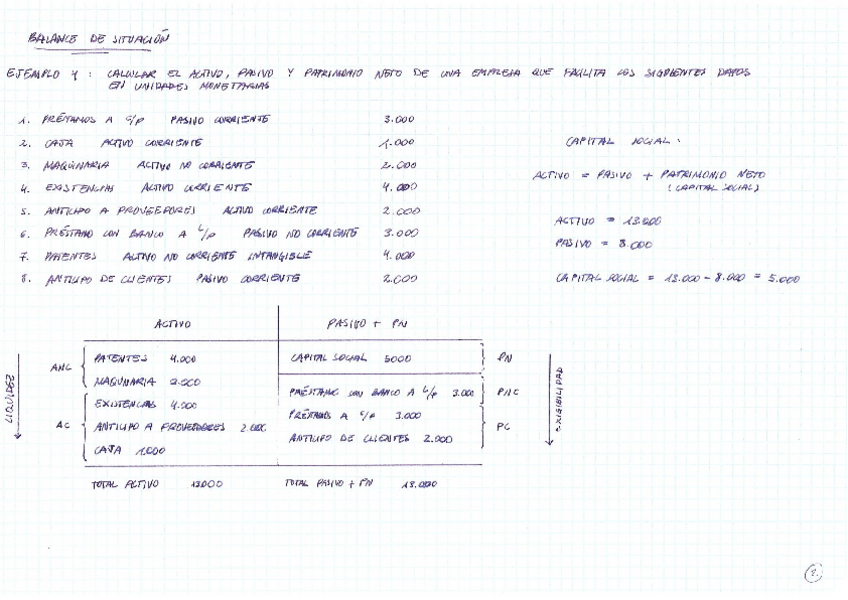 BALANCE DE SITUACIÓN
EJEMPLO 4 : CALCULAR EL ACTIVO, PASIVO Y PATRIMONIO NETO DE UNA EMPRESA QUE FACILITA LOS SIGUIENTES DATOS
EN UNIDADES MONETARIAS
1. PRÉSTAMOS A C/P PASIVO CORRIENTE 3.000
2. CAJA ACTIVO CORRIENTE 1.000
3. MAQUINARIA ACTIVO NO CORRIENTE 2.000
4. EXISTENCIAS ACTIVO CORRIENTE 4.000
5. ANTICIPO A PROVEEDORES ACTIVO CORRIENTE 2.000
6. PRÉSTAMO CON BANCO A L/P PASIVO NO CORRIENTE 3.000
7. PATENTES ACTIVO NO CORRIENTE INTANGIBLE 4.000
8. ANTICIPO DE CLIENTES PASIVO CORRIENTE 2.000
CAPITAL SOCIAL:
ACTIVO = PASIVO + PATRIMONIO NETO
(CAPITAL SOCIAL)
ACTIVO = 13.000
PASIVO = 8.000
CAPITAL SOCIAL = 13.000 - 8.000 = 5.000
ACTIVO PASIVO + PN
LIQUIDEZ
ANC
PATENTES 4.000
MAQUINARIA 2.000
AC
EXISTENCIAS 4.000
ANTICIPO A PROVEEDORES 2.000
CAJA 1.000
TOTAL ACTIVO 13.000
CAPITAL SOCIAL 5000 PN
PRÉSTAMO CON BANCO A L/P 3.000 PNC
PRÉSTAMOS A C/P 3.000
ANTICIPO DE CLIENTES 2.000
PC
EXIGIBILIDAD
TOTAL PASIVO + PN 13.000
2.